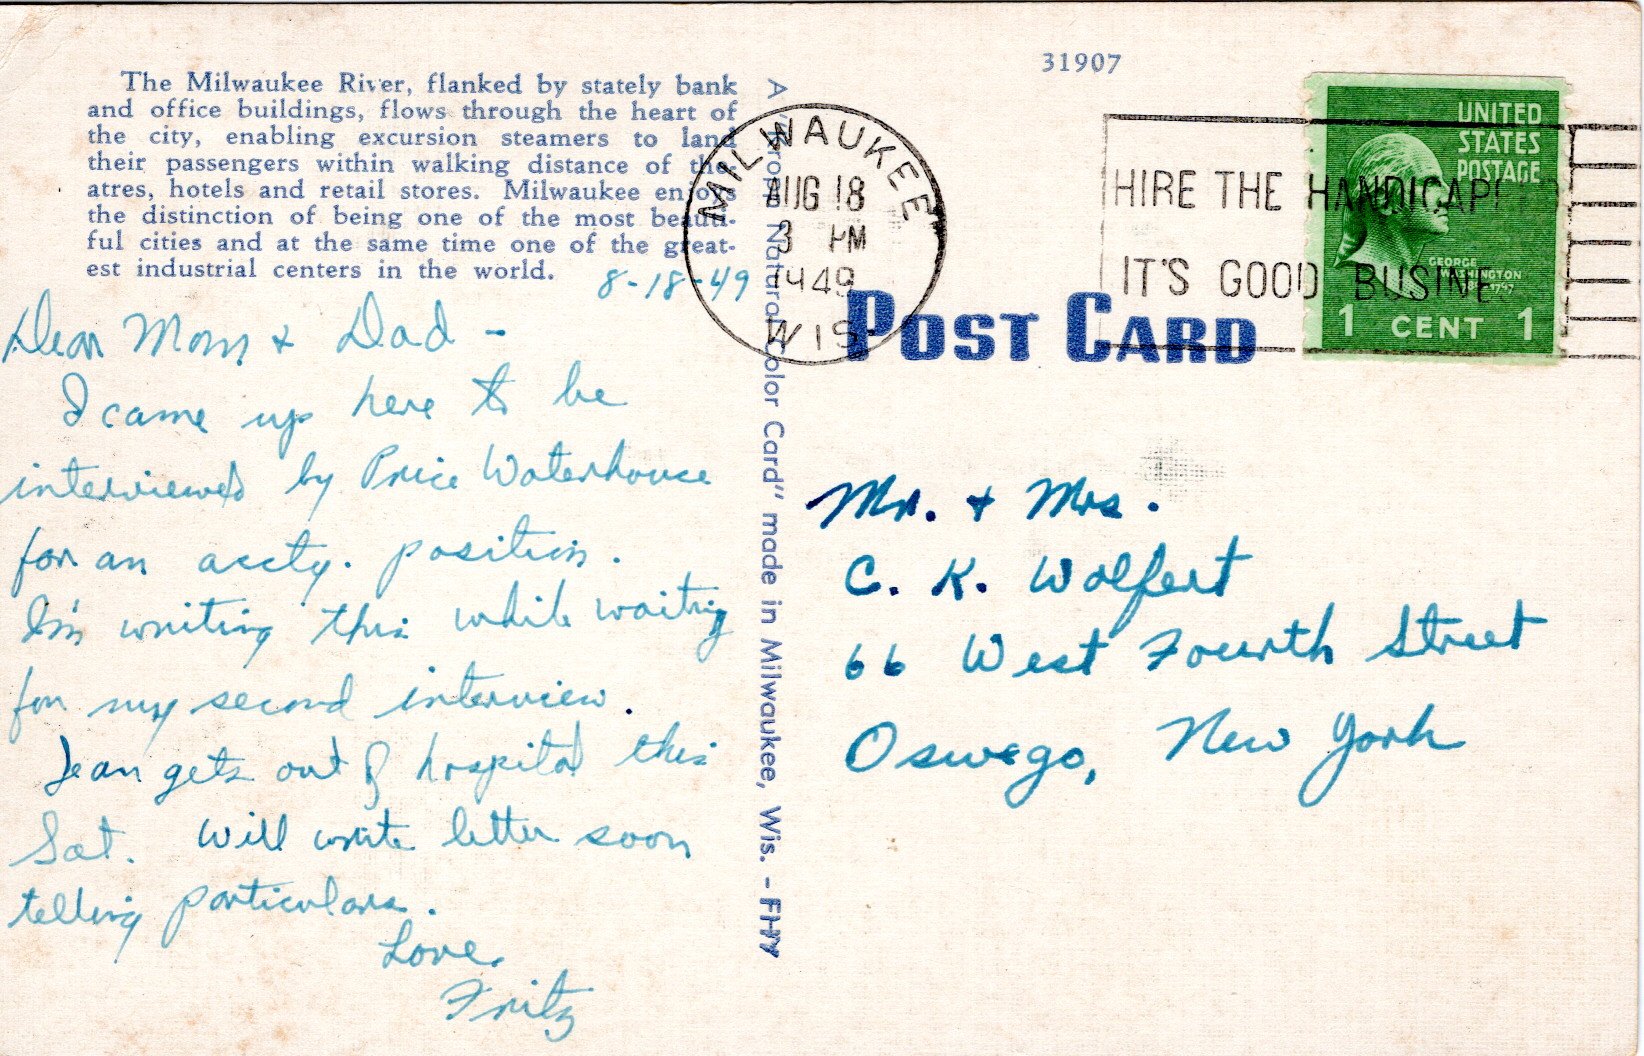 31907
The Milwaukee River, flanked by stately bank
and office buildings, flows through the heart of
the city, enabling excursion steamers to land
their passengers within walking distance of the-
atres, hotels and retail stores. Milwaukee enjoys
the distinction of being one of the most beauti-
ful cities and at the same time one of the great-
est industrial centers in the world.
8-18-49
Dear Mom & Dad -
I came up here to be
interviewed by Price Waterhouse
for an acctg. position.
I'm writing this while waiting
for my second interview.
Jean gets out of hospital this
Sat. Will write letter soon
telling particulars.
Love,
Fritz
Natural Color Card" made in Milwaukee, Wis. -
MILWAUKEE
AUG 18
3 PM
1949
WIS
HIRE THE HANDICAP
IT'S GOOD BUSINE
UNITED
STATES
POSTAGE
GEORGE
WASHINGTON
1 CENT 1
POST CARD
Mr. & Mrs.
C. K. Wolfert
66 West Fourth Street
Oswego, New York